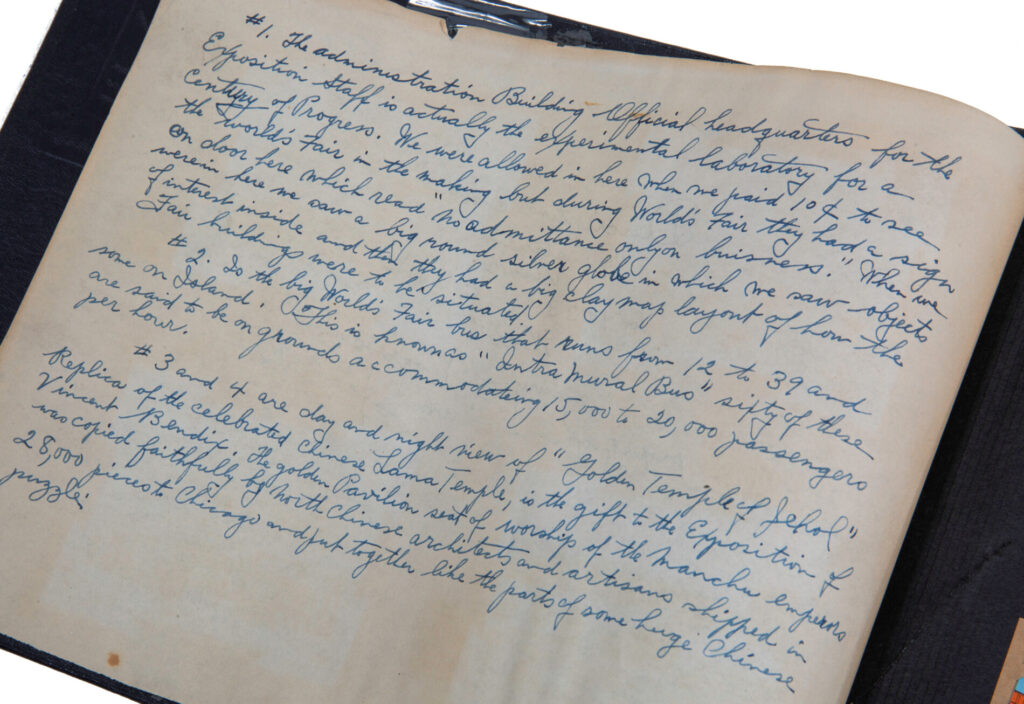 #1. The administration Building Official headquarters for the
Exposition Staff is actually the experimental laboratory for a
Century of Progress. We were allowed in here when we paid 10¢ to see
the world's Fair in the making but during World's Fair they had a sign
on door here which read "no admittance only on buisness." When we
werein here we saw a big round silver globe in which we saw objects
of interest inside and then they had a big clay map layout of how the
Fair buildings were to be situated
#2. Is the big World's Fair bus that runs from 12 to 39 and
some on Island. This is known as "Intra Mural Bus" sifty of these
are said to be on grounds accommodateing 15,000 to 20,000 passengers
per hour.
#3 and 4 are day and night view of "Golden Temple of Jehol"
Replica of the celebrated Chinese Lama Temple, is the gift to the Exposition of
Vincent Bendix. The golden Pavilion seat of worship of the Manchu emperors
was copied faithfully by north Chinese architects and artisans shipped in
28,000 pieces to Chicago and put together like the parts of some huge Chinese
puzzle.